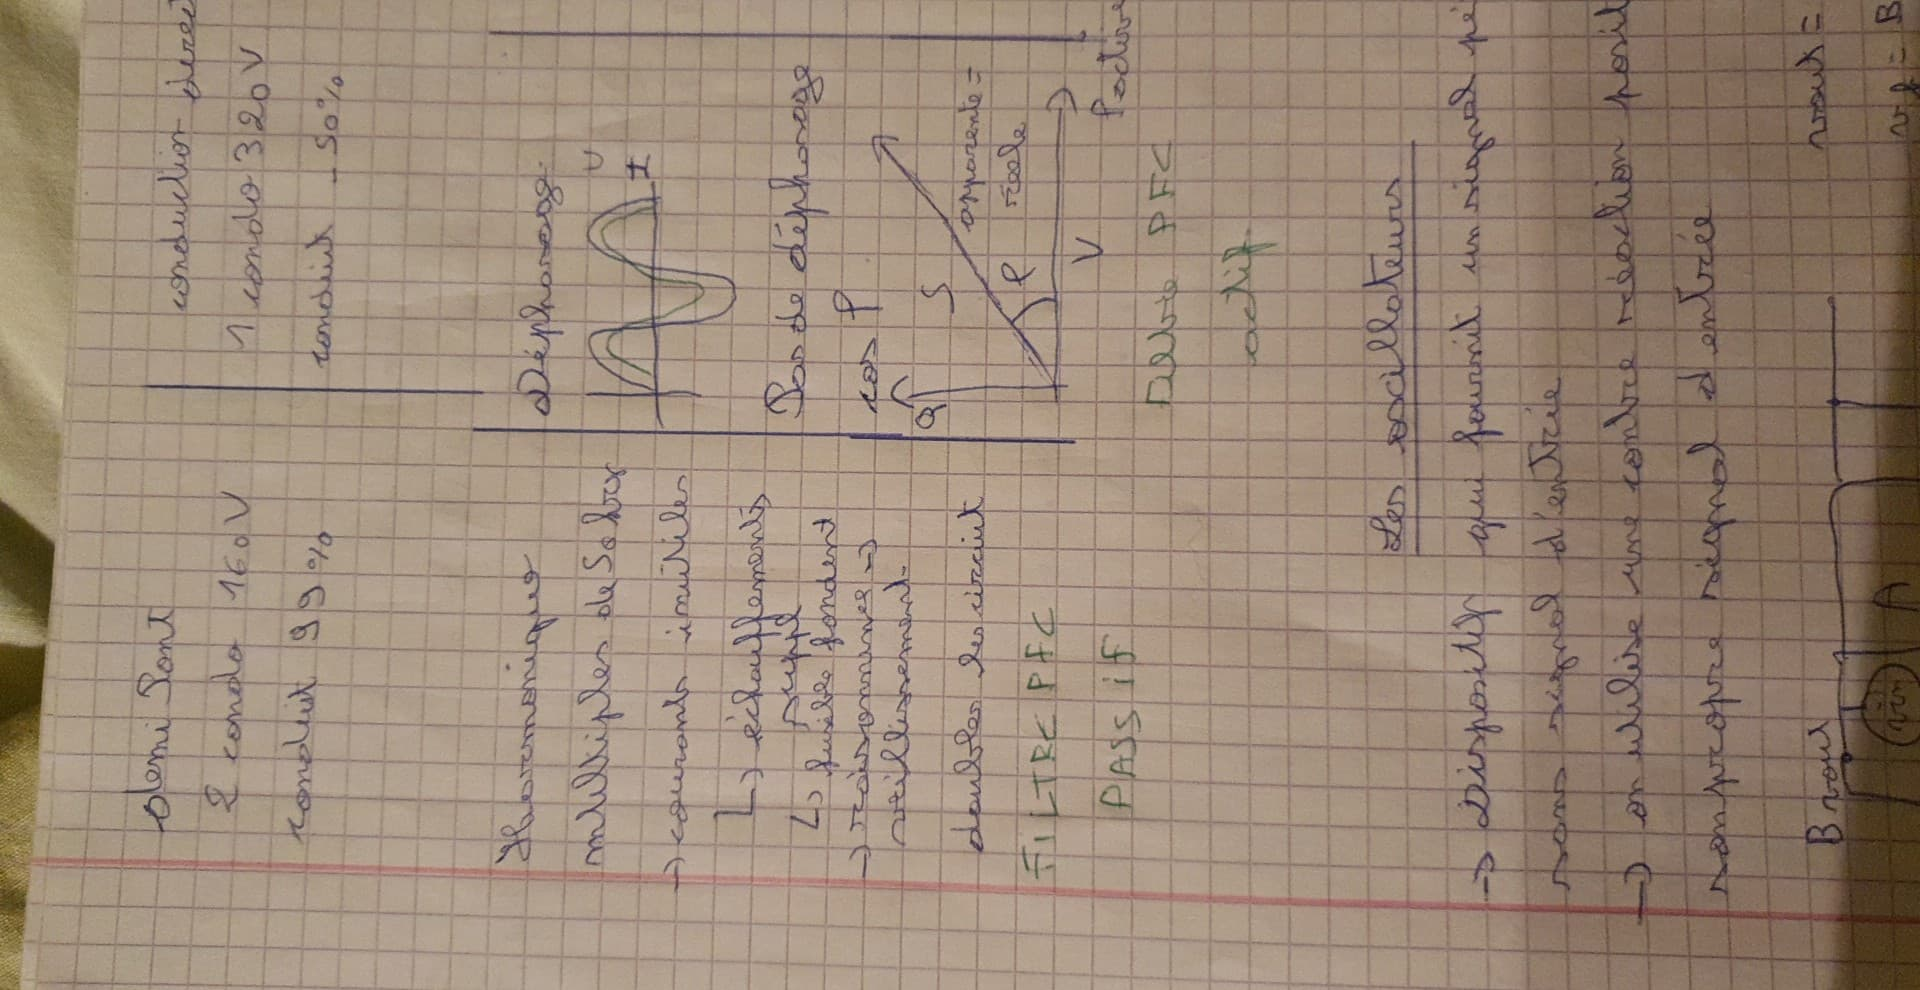 demi Pont
2 condo 160V
conduit 99%
conduction direct
1 condo 320V
conduit - 50%
Harmonique
multiples de 50hz
→ courants inutiles
↳ échauffements
↳ fusible fondent
→ résonances →
vieillissement
doubler les circuit
FILTRE PFC
PASSIF
Déphasage
U
I
Pas de déphasage
cos φ
Q
S
apparente =
réelle
φ
V
P active
PFC
actif
Les oscillateurs
→ Dispositif qui fournit un signal pé
sans signal d'entrée
→ on utilise une contre réaction posit
son propre signal d'entrée
B vout
vin
A
vout =
vf = B